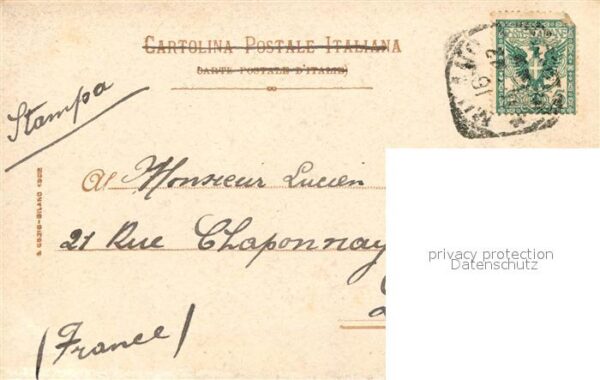 CARTOLINA POSTALE ITALIANA
(CARTE POSTALE D'ITALIE)
Stampa
A Monsieur Lucien
21 Rue Chaponnay
(France)
privacy protection
Datenschutz